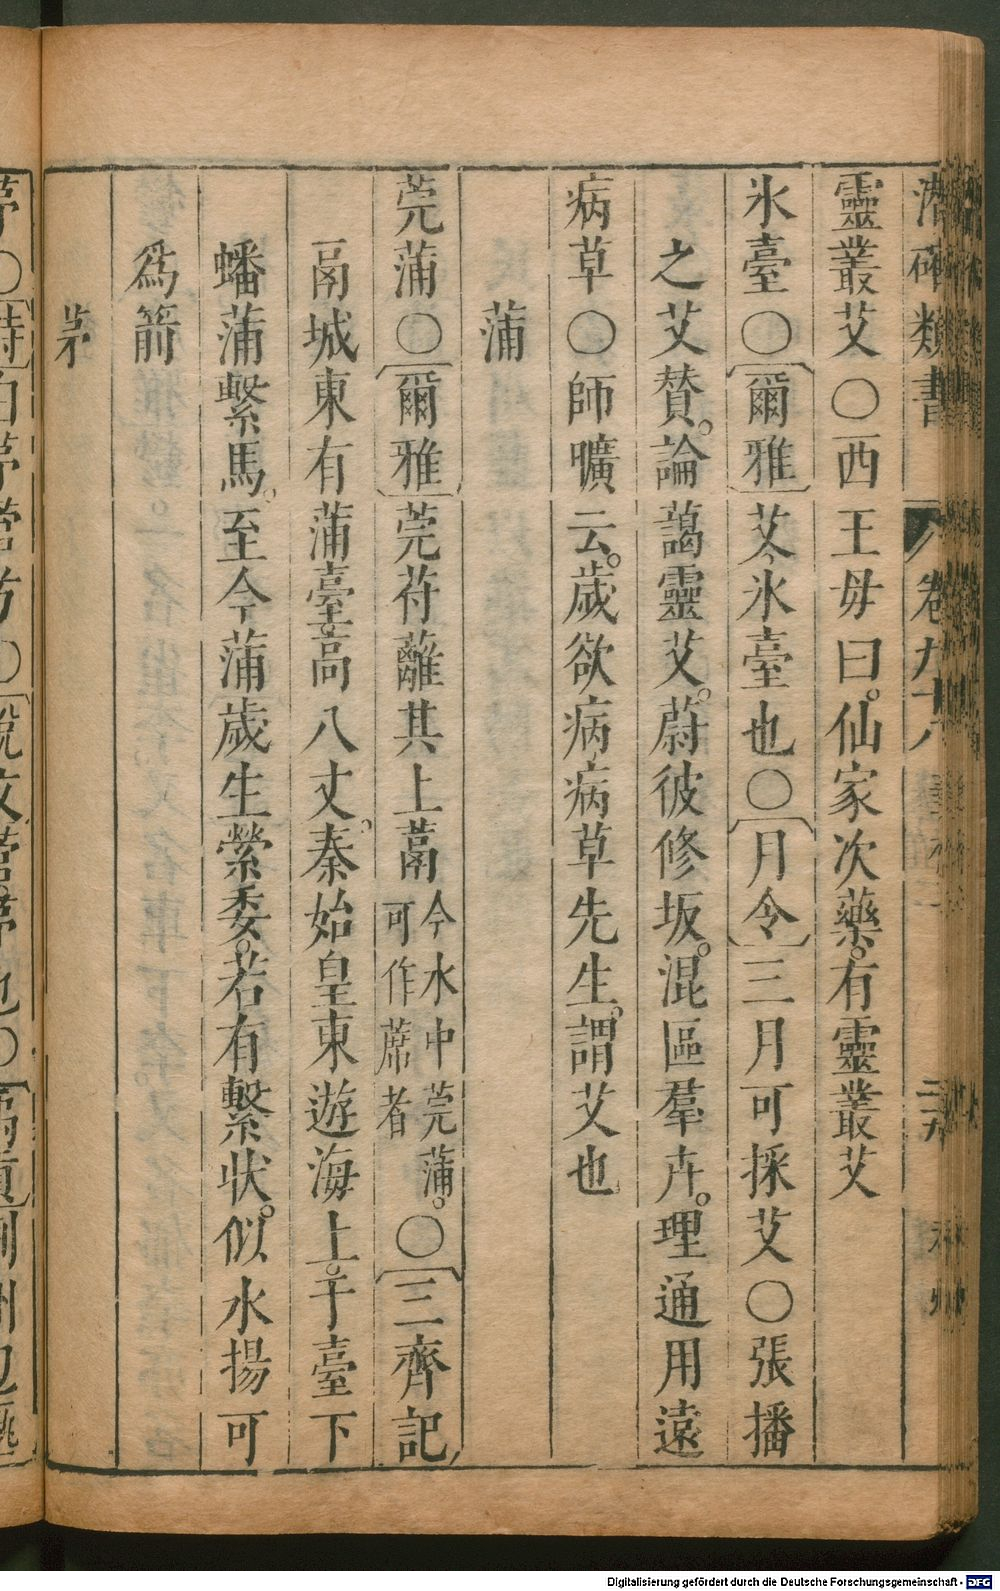 潛確類書 卷九十八 二九
靈叢艾〇西王母曰。仙家次藥。有靈叢艾
氷臺〇〔爾雅〕艾今氷臺也〇〔月令〕三月可採艾〇張播
之艾賛。論藹靈艾。蔚彼修坂。混區羣卉。理通用遠
病草〇師曠云。歲欲病病草先生。謂艾也
蒲
莞蒲〇〔爾雅〕莞苻蘺其上蒚今水中莞蒲。可作蓆者〇〔三齊記〕
鬲城東有蒲臺。高八丈。秦始皇東遊海上。于臺下
蟠蒲繫馬。至今蒲歲生縈委。若有繫状。似水揚可
爲箭
茅
Digitalisierung gefördert durch die Deutsche Forschungsgemeinschaft - DFG